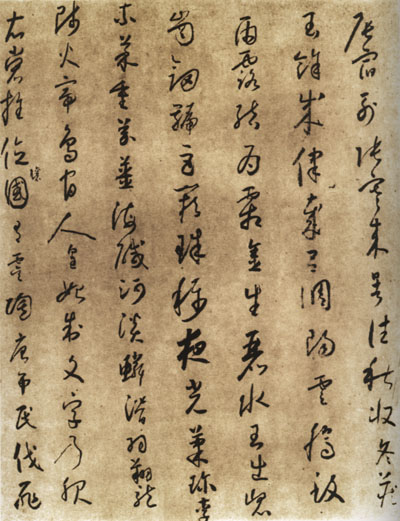 辰宿列張寒來暑往秋收冬藏
閏餘成律歲呂調陽雲騰致
雨露結為霜金生麗水玉出崑
崗劍號巨闕珠稱夜光菓珍李
柰菜重芥薑海鹹河淡鱗潛羽翔龍
師火帝鳥官人皇始制文字乃服
衣裳推位讓國有虞陶唐弔民伐罪